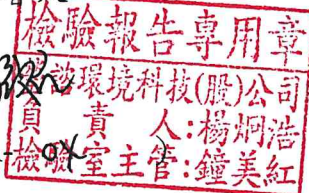 檢驗報告專用章
諧環境科技(股)公司
負責人:楊炯浩
檢驗室主管:鐘美紅